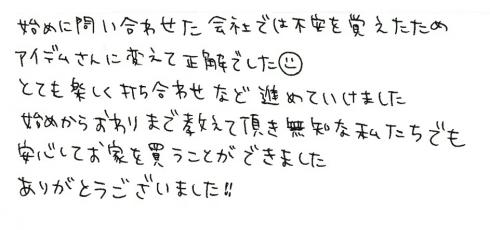 始めに問い合わせた会社では不安を覚えたため
アイデムさんに変えて正解でした☺
とても楽しく打ち合わせなど進めていけました
始めからおわりまで教えて頂き無知な私たちでも
安心してお家を買うことができました
ありがとうございました!!